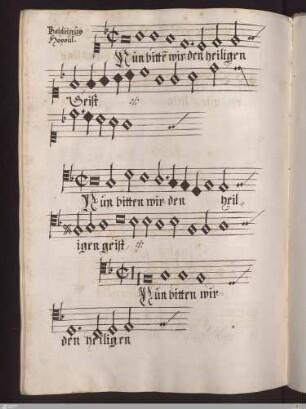 Nun bitten wir den heiligen
Geist
Nun bitten wir den heil-
igen geist
Nun bitten wir
den heiligen